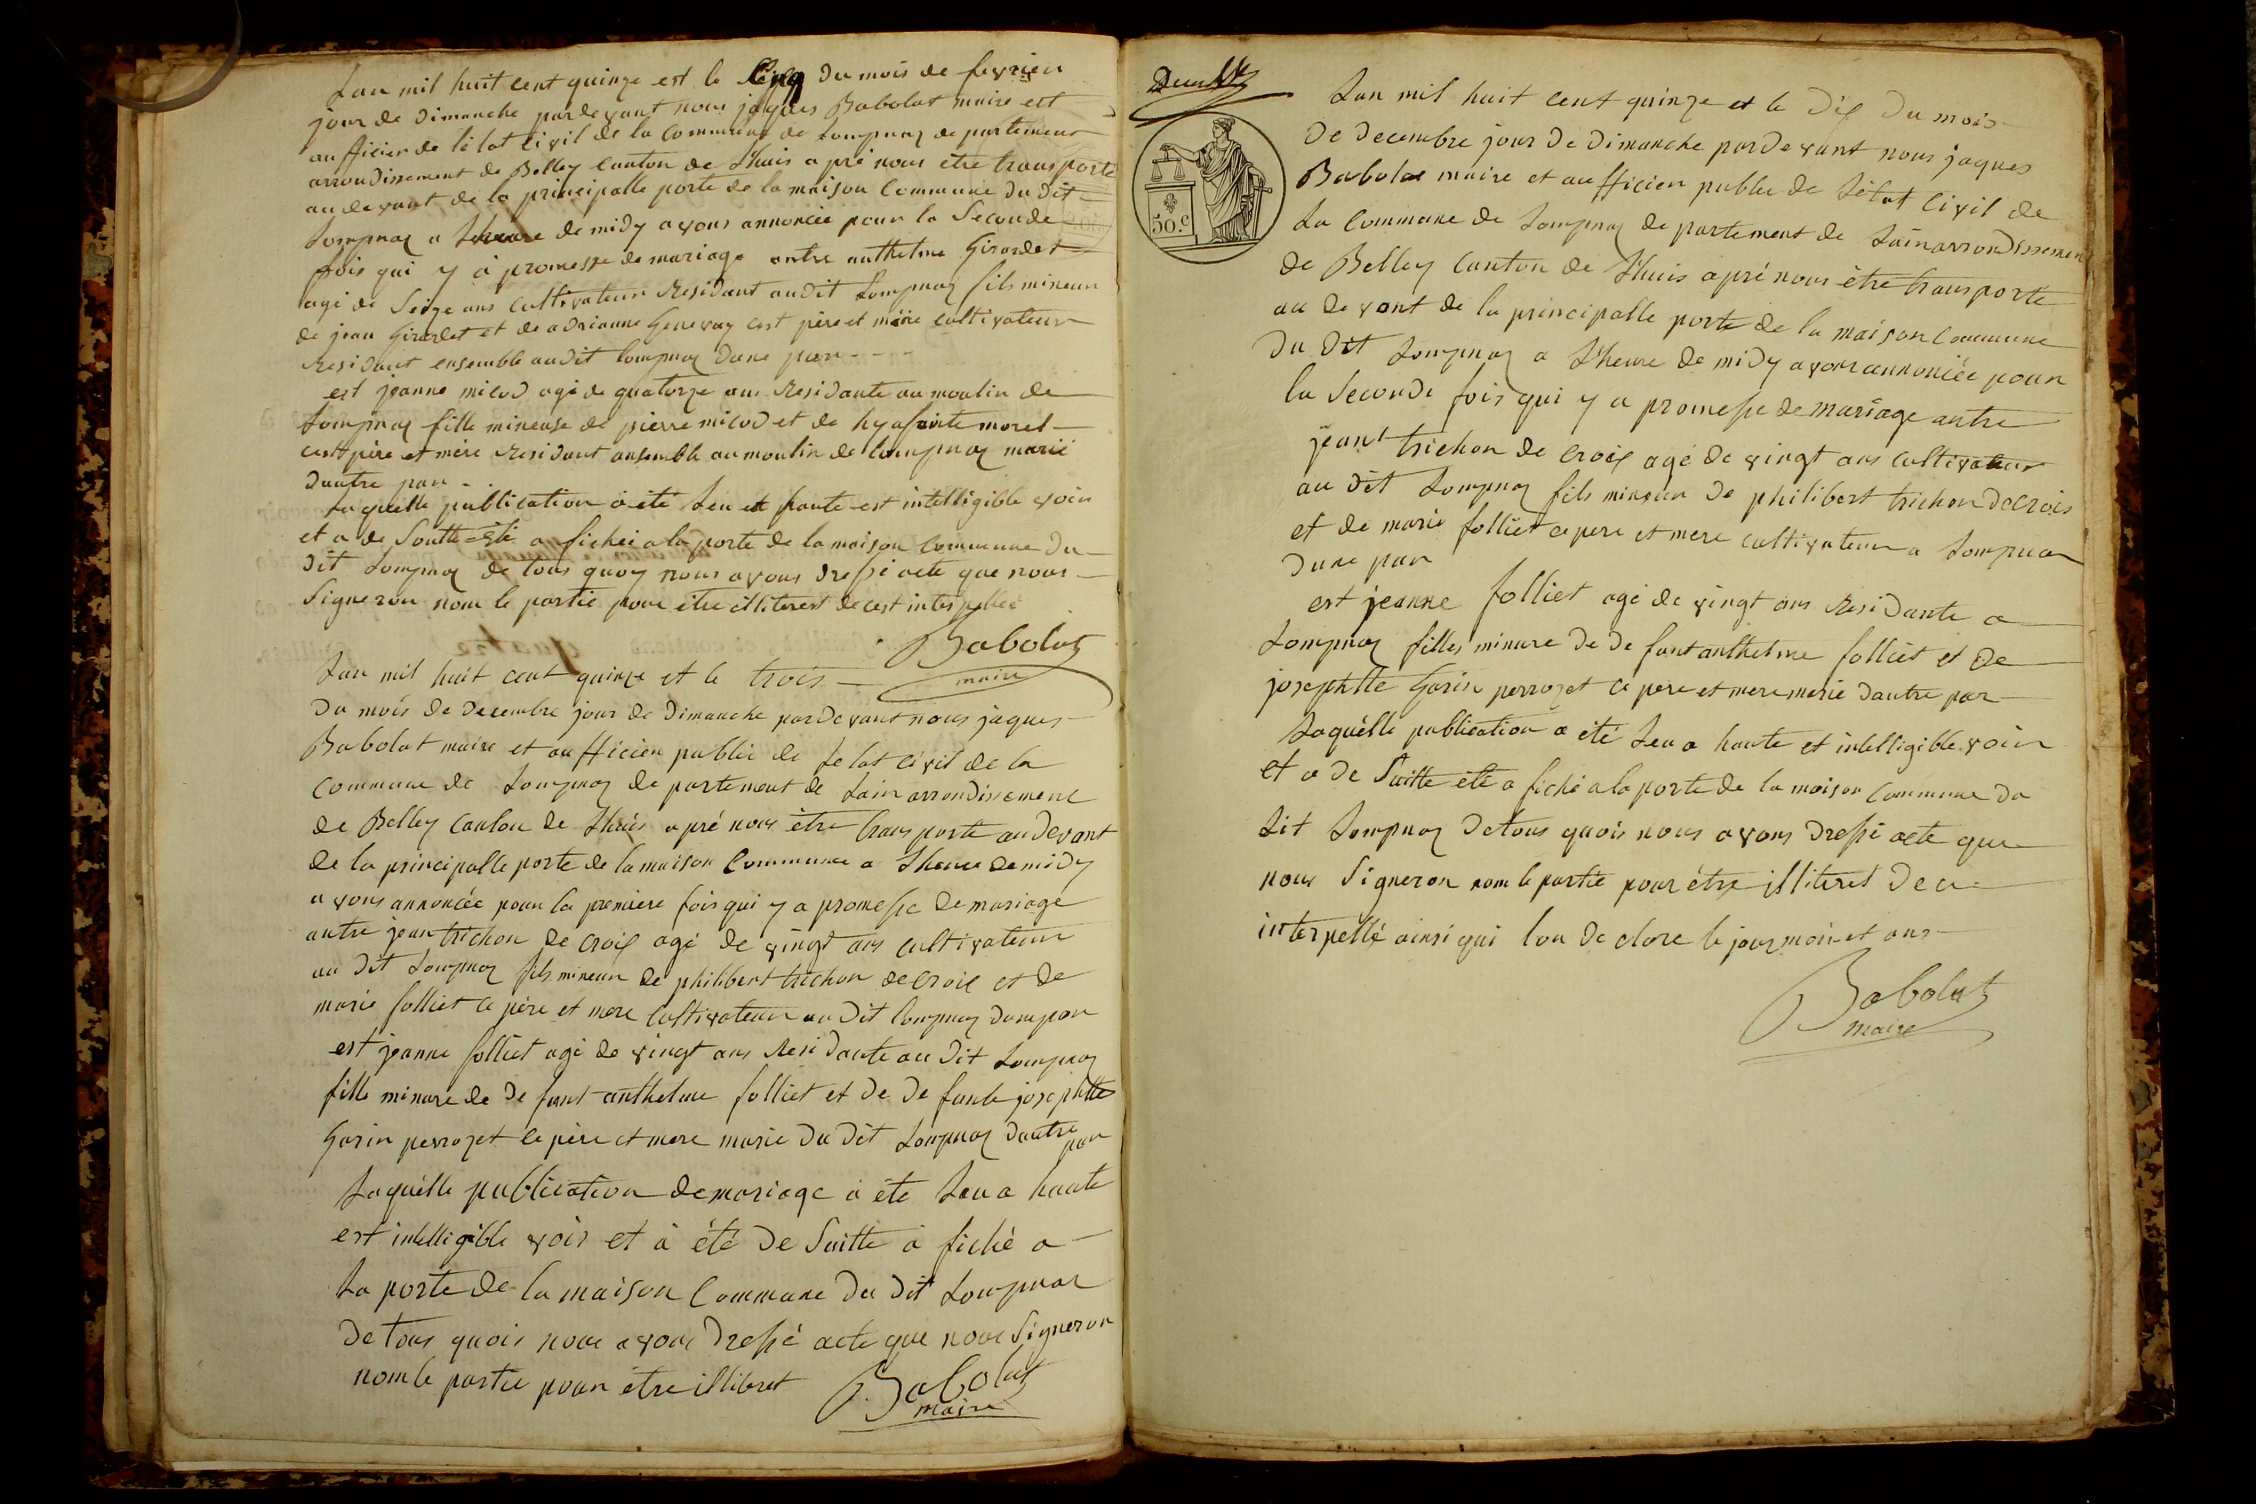 Lan mil huit cent quinze est le Cinq du mois de fevrier
jour de dimanche pardevant nous jaques Babolat maire est
aufficier de létat Civil de la Commune de Lompnaz de partement
arrondissement de Belley Canton de Lhuis apré nous être transporte
au devant de la principalle porte de la maison Commune du dit
Lompnaz a Lheure de midy avons annoncée pour la Seconde
fois qui y à promesse de mariage antre anthelme Girardet
agé de Seize ans Cultivateur Residant audit Lompnaz fils mineur
de jean Girardet et de adrianne Genevay cest père et mère cultivateur
Residant ensemble audit lompnaz dune par
est jeanne milod agé de quatorze ans Residante au moulin de
Lompnaz fille mineuse de pierre milod et de hyasainte morel
cest père et mère Residant ansemble au moulin de lompnaz marié
dautre par
Laquelle publication à été Leu et haute est intelligible voix
et a de Suitte été a fichée a la porte de la maison Commune du
dit Lompnaz de tous quoy nous avons dressé acte que nous
Signeron nom le partie pour être illiterest de cest interpellée
Babolat
maire
Lan mil huit cent quinze et le trois
du mois de decembre jour de dimanche pardevant nous jaques
Babolat maire et aufficier publié de Létat civil de la
Commune de Lompnaz de partement de Lain arrondissement
de Belley Canton de Lhuis apré nous être transporte au devant
de la principalle porte de la maison Commune a Lheure de midy
avons annoncée pour la premiere fois qui y a promesse de mariage
antre jean trichon de croix agé de vingt ans cultivateur
au dit Lompnaz fils mineur de philibert trichon decroix et de
marie folliet ce père et mere Cultivateur au dit lompnaz dune par
est jeanne folliet agé de vingt ans Residante au dit Lompnaz
fille minure de de funt anthelme folliet et de de funte josephtte
Garin perrozet ce père et mere marie du dit Lompnaz dautre
par
Laquélle publication de mariage à été Leu a haute
est intelligible voix et à été de Suitte à fiché a
La porte de la maison Commune du dit Lompnaz
de tous quois nous avons dressé acte que nous Signeron
nom le partie pour être illiteret
Babolat
maire
Lan mil huit cent quinze et le dix du mois
de decembre jour de dimanche pardevant nous jaques
Babolat maire et aufficier publié de Létat Civil de
La Commune de Lompnaz de partement de Lain arrondissement
de Belley Canton de Lhuis apré nous être transporté
au devant de la principalle porte de la maison Commune
du dit Lompnaz a Lheure de midy avons annoncée pour
la Seconde fois qui y a promesse de mariage antre
jean trichon de croix agé de vingt ans cultivateur
au dit Lompnaz fils mineur de philibert trichon decroix
et de marie folliet ce pere et mere cultivateur a Lompnaz
dune par
est jeanne folliet agé de vingt ans Residante a
Lompnaz filles minure de de funt anthelme folliet et de
josephtte Garin perrozet ce pere et mere marié dautre par
Laquélle publication a été Leu a haute et intelligible voix
et a de Suitte été a fiché a la porte de la maison Commune du
dit Lompnaz de tous quois nous avons dressé acte que
nous Signeron nom le partie pour être illiteret de ce
interpellé ainsi qui lon de clare le jour mois et ans
Babolat
maire
50.c